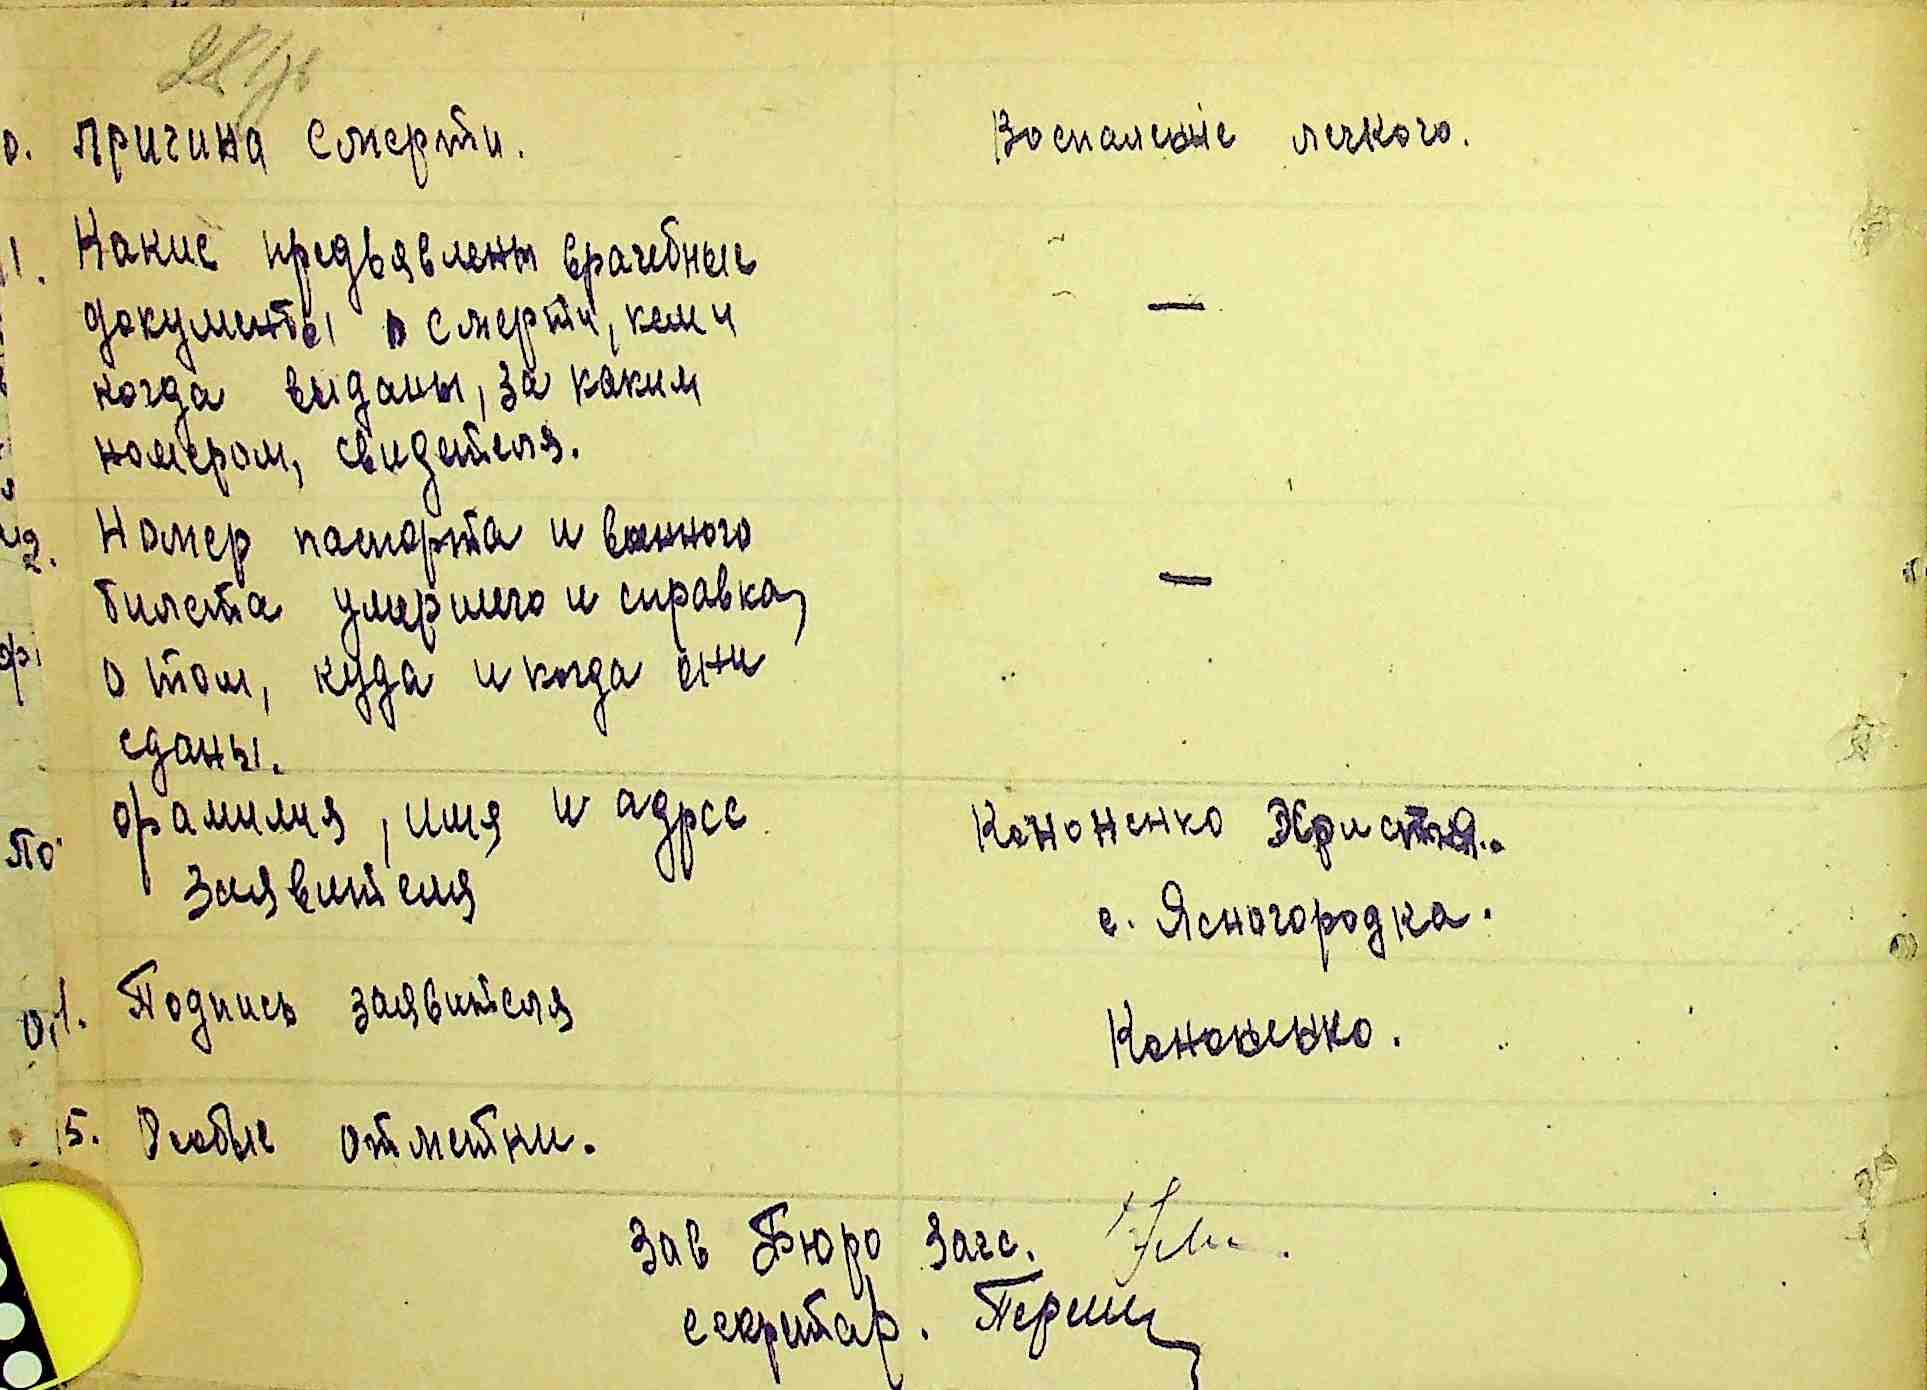 0. Причина смерти. Воспаление легкого.
11. Какие предъявлены врачебные
документы о смерти, кем и —
когда выданы, за каким
номером, свидетеля.
12. Номер паспорта и военного
билета умершего и справка, —
о том, куда и когда они
сданы.
Фамилия, имя и адрес Кононенко Христя.
заявителя с. Ясногородка.
Подпись заявителя Кононенко.
15. Особые отметки.
Зав Бюро Загс.
секретар.